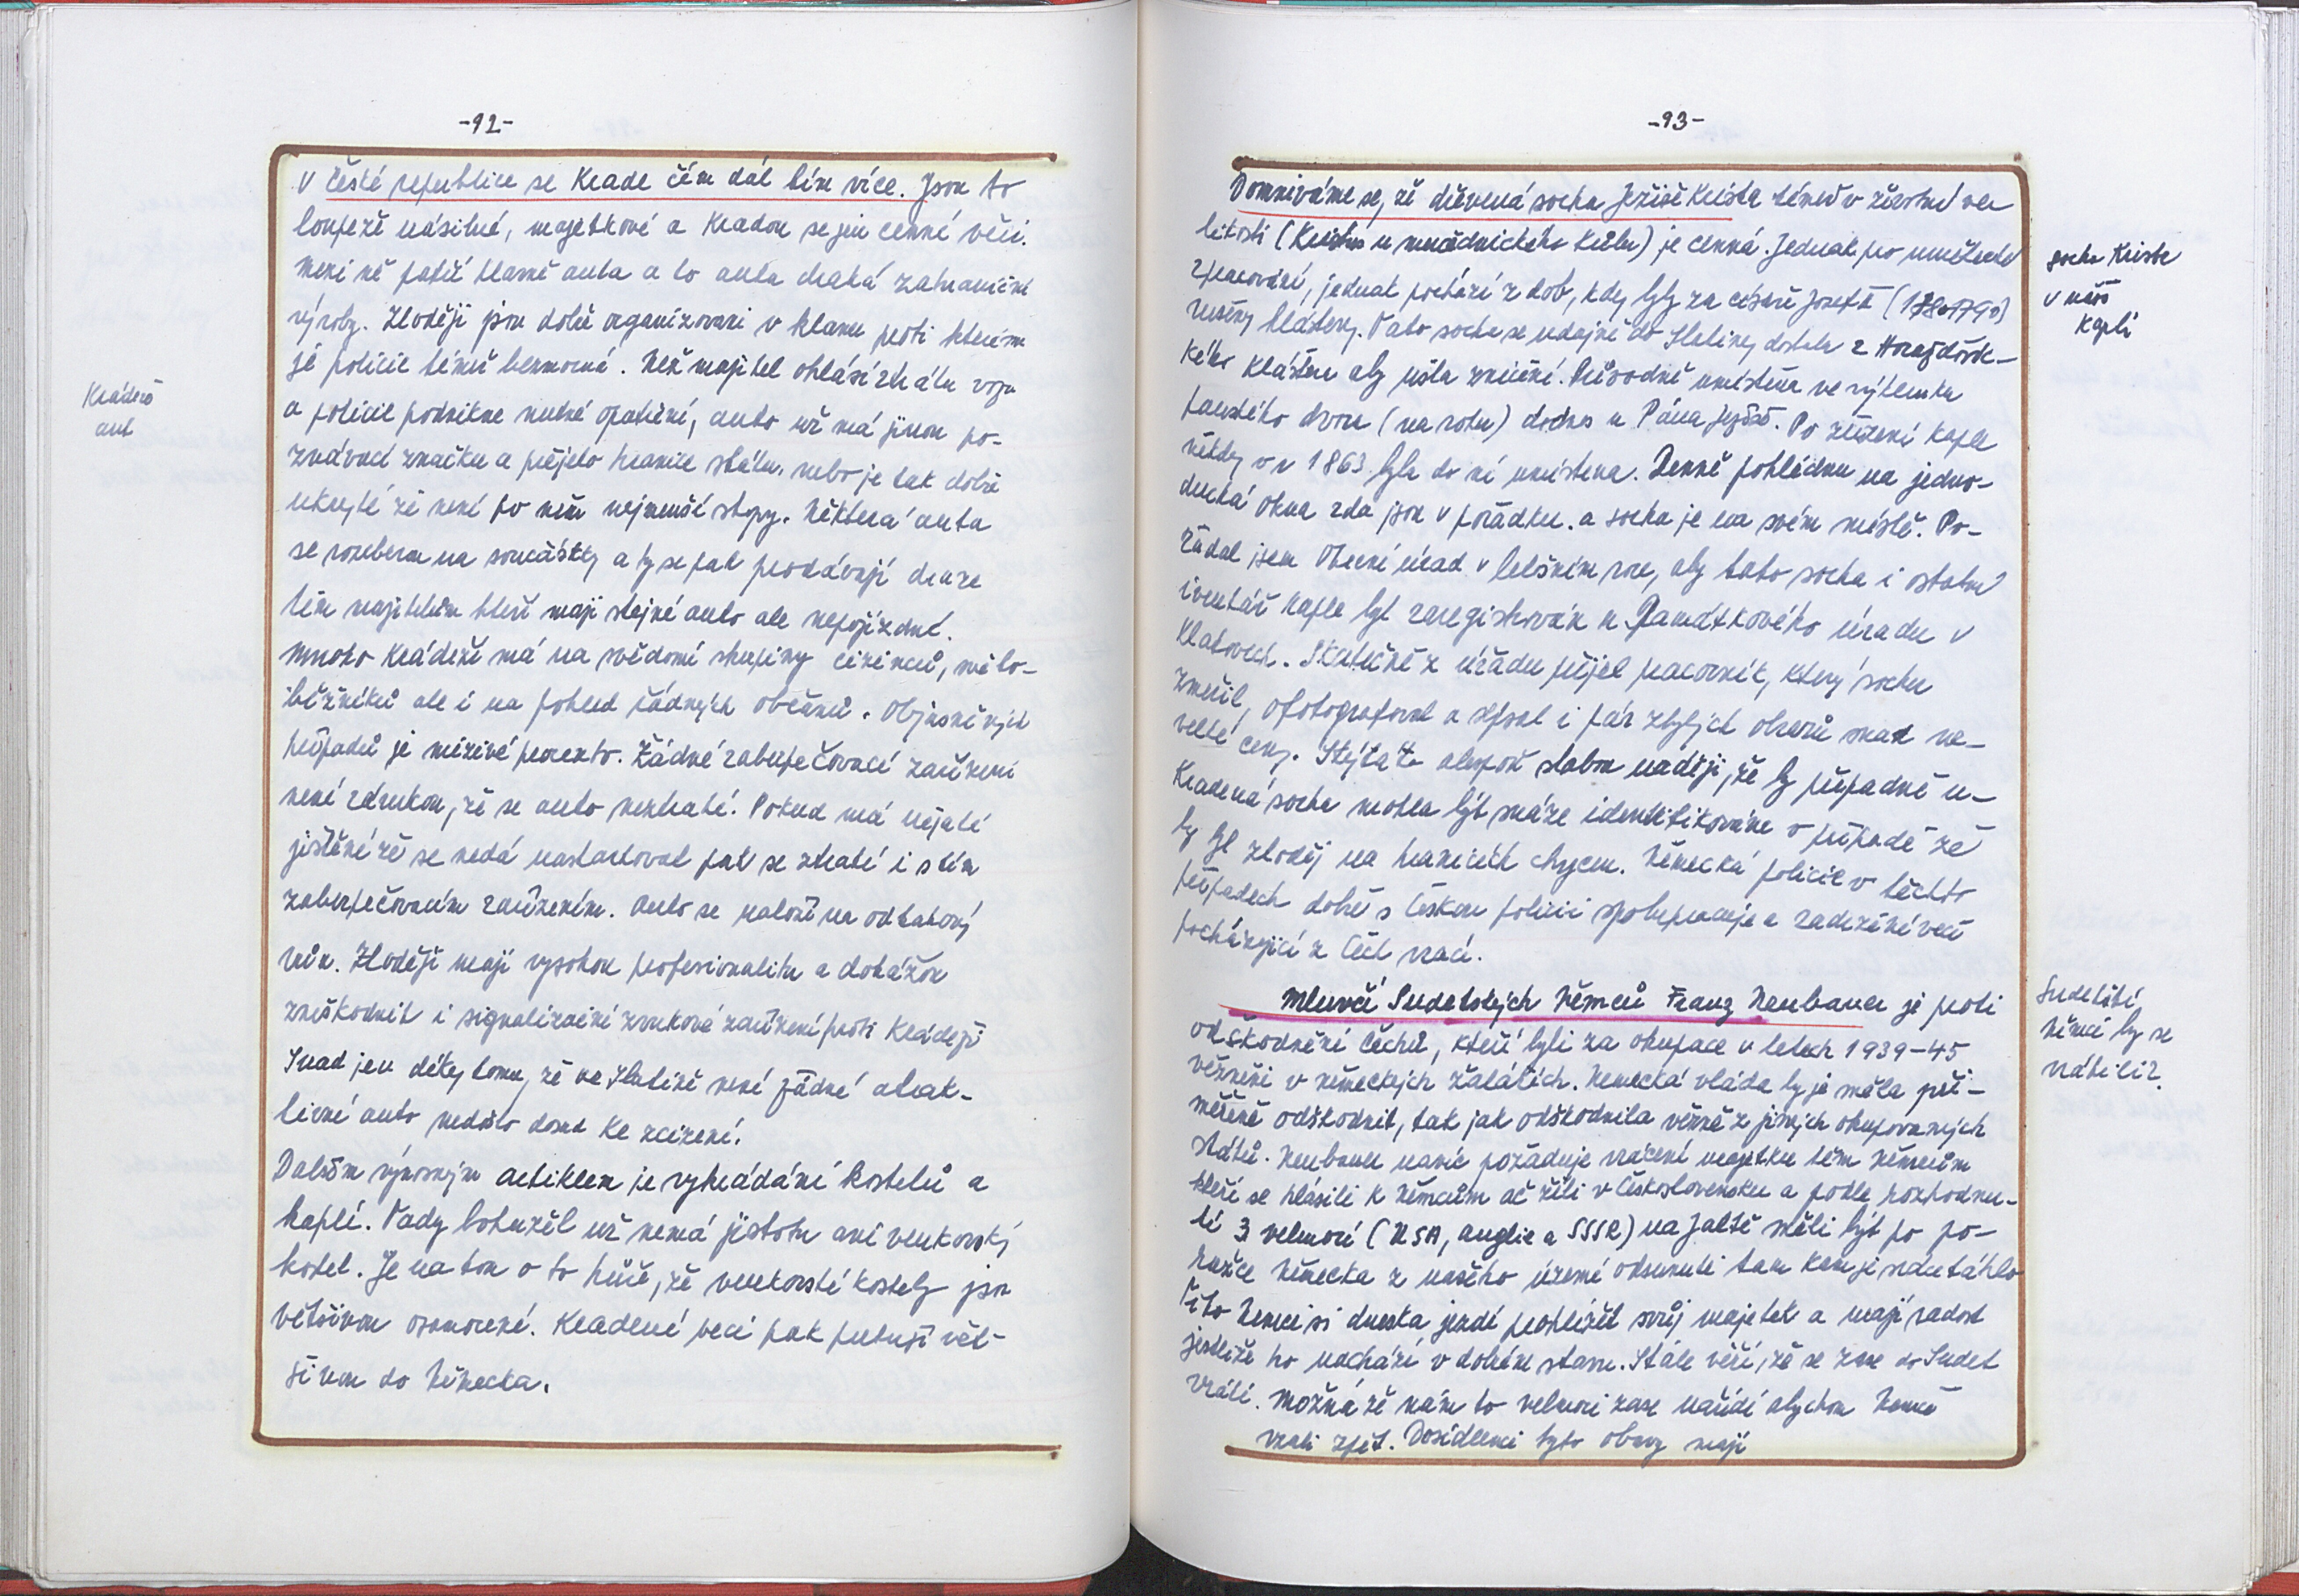 -92-
V České republice se krade čím dál tím více. Jsou to
loupeže násilné, majetkové a kradou se jen cenné věci.
Mezi ně patří hlavně auta a to auta drahá zahraniční
výroby. Zloději jsou dobře organizovaní v klanu proti kterému
je policie téměř bezmocná. Než majitel ohlásí ztrátu vozu
a policie podnikne nutné opatření, auto už má jinou po-
znávací značku a přejelo hranice státu, nebo je tak dobře
ukryté že není po něm nejmenší stopy. Některá auta
se rozeberou na součástky a ty se pak prodávají draze
těm majitelům kteří mají stejné auto ale nepojízdné.
Mnoho krádeží má na svědomí skupiny cizinců, světo-
běžníků ale i na pohled řádných občanů. Objasněných
případů je mizivé procento. Žádné zabezpečovací zařízení
není zárukou, že se auto neztratí. Pokud má nějaké
jištění že se nedá nastartovat pak se ztratí i s tím
zabezpečovacím zařízením. Auto se naloží na odtahový
vůz. Zloději mají vysokou profesionalitu a dokážou
zneškodnit i signalizační zvukové zařízení proti krádeži
Snad jen díky tomu, že ve Slatině není žádné atrak-
tivní auto nedošlo dosud ke zcizení.
Dalším výnosným artiklem je vykrádání kostelů a
kaplí. Tady bohužel už nemá jistotu ani venkovský
kostel. Je na tom o to hůře, že venkovské kostely jsou
většinou osamocené. Kradené věci pak putují vět-
šinou do Německa.
Krádeže
aut
-93-
Domníváme se, že dřevěná socha Ježíše Krista téměř v životní ve
likosti (Kristus u mučednického kůlu) je cenná. Jednak pro umělecké
zpracování, jednak pochází z dob, kdy byly za císaře Josefa (1780-1790)
rušeny kláštery. Tato socha se údajně do Slatiny dostala z Horažďovic-
kého kláštera aby ušla zničení. Původně umístěna ve výklenku
panského dvora (na rohu) dodnes u Pána Ježíše. Po zřízení kaple
někdy v r 1863 byla do ní umístěna. Denně pohlédnu na jedno-
duchá okna zda jsou v pořádku. a socha je na svém místě. Po-
žádal jsem Obecní úřad v letošním roce, aby tato socha i ostatní
inventář kaple byl zaregistrován u Památkového úřadu v
Klatovech. Skutečně z úřadu přijel pracovník, který sochu
změřil, ofotografoval a sepsal i pár zbylých obrazů snad ne-
velké ceny. Skýtá to alespoň slabou naději, že by případně u-
kradená socha mohla být snáze identifikována v případě že
by byl zloděj na hranicích chycen. Německá policie v těchto
případech dobře s Českou policií spolupracuje a zadržené věci
pocházející z Čech vrací.
Mluvčí Sudetských Němců Franz Neubauer je proti
odškodnění Čechů, kteří byli za okupace v letech 1939-45
vězněni v německých žalářích. Německá vláda by je měla při-
měřeně odškodnit, tak jak odškodnila vězně z jiných okupovaných
států. Neubauer navíc požaduje vrácení majetku těm Němcům
kteří se hlásili k Němcům ač žili v Československu a podle rozhodnu-
tí 3 velmocí (USA, Anglie a SSSR) na Jaltě měli být po po-
rážce Německa z našeho území odsunuti tam kam je srdce táhlo
Tito Němci si dneska jezdí prohlížet svůj majetek a mají radost
jestliže ho nachází v dobrém stavu. Stále věří, že se zase do Sudet
vrátí. Možná že nám to velmoci zase nařídí abychom Němce
vzali zpět. Dosídlenci tyto obavy mají
socha Krista
v naší
kapli
Sudetští
Němci by se
vrátili?